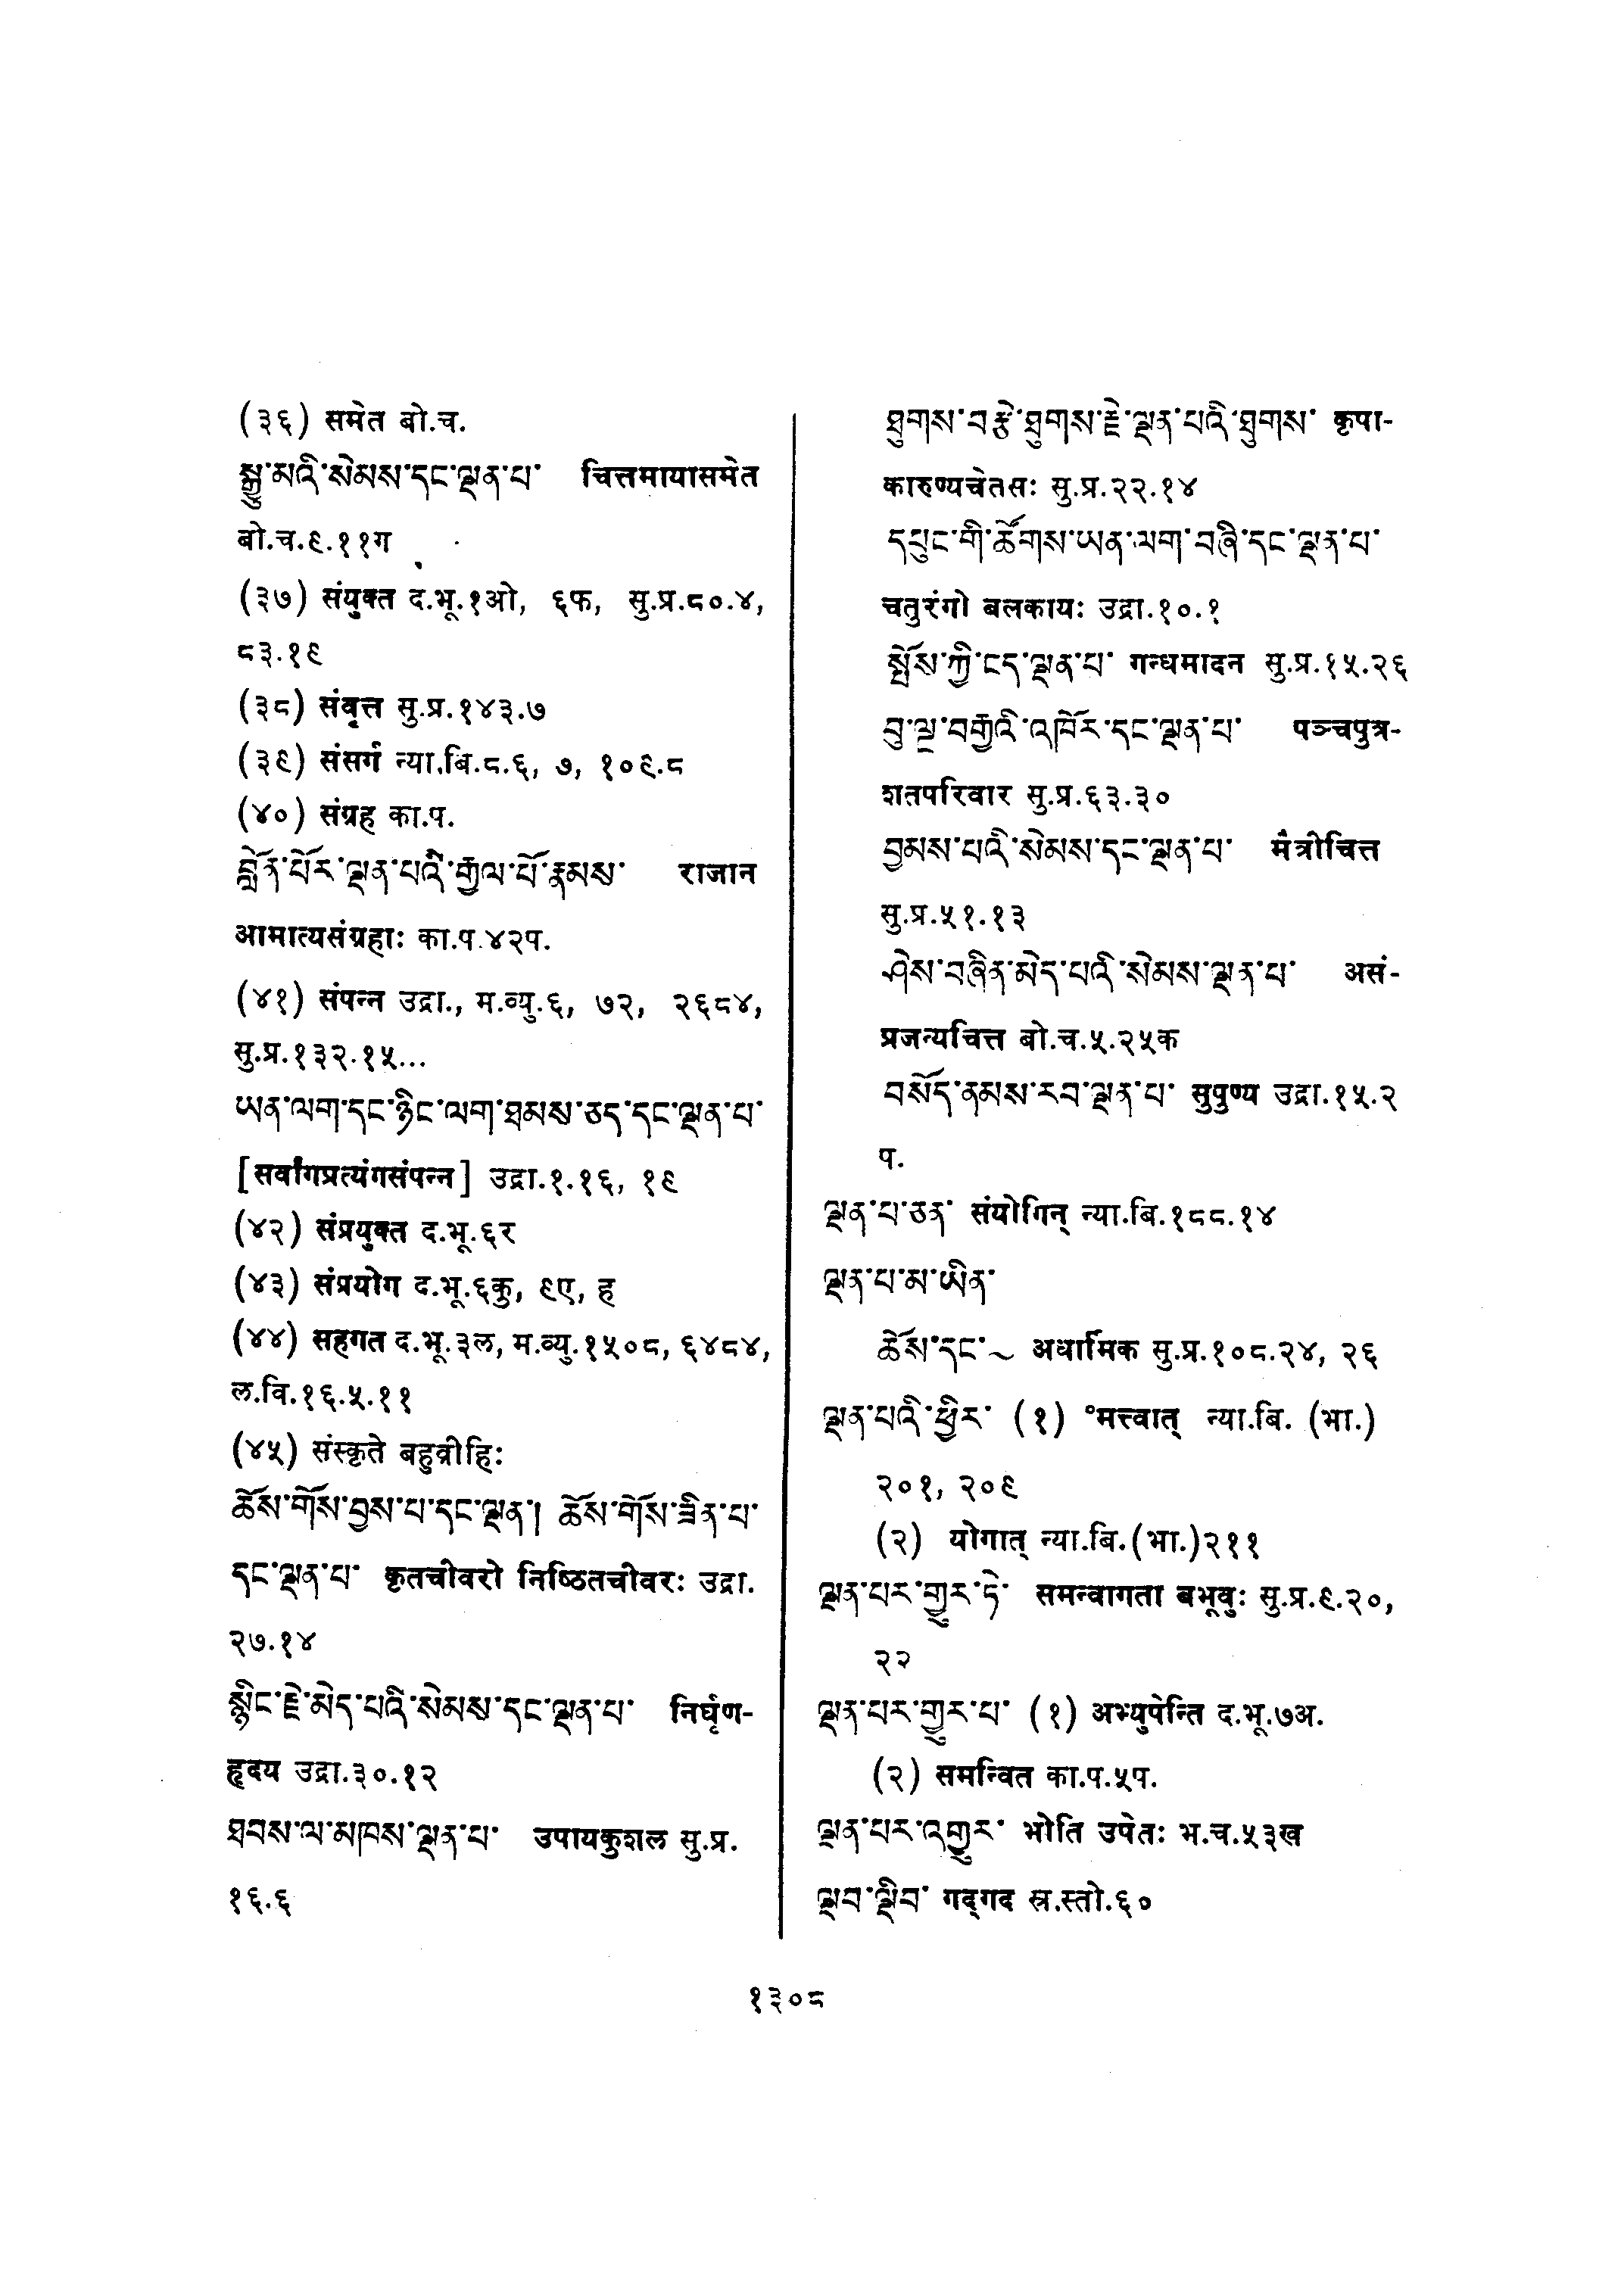 (३६) समेत बो.च.
སྒྱུ་མའི་སེམས་དང་ལྡན་པ་ चित्तमायासमेत
बो.च.९.११ग
(३७) संयुक्त द.भू.१ओ, ६फ, सु.प्र.८०.४,
८३.१९
(३८) संवृत्त सु.प्र.१४३.७
(३९) संसर्ग न्या.बि.८.६, ७, १०९.८
(४०) संग्रह का.प.
བློན་པོར་ལྡན་པའི་རྒྱལ་པོ་རྣམས་ राजान
आमात्यसंग्रहाः का.प.४२प.
(४१) संपन्न उद्रा., म.व्यु.६, ७२, २६८४,
सु.प्र.१३२.१५...
ཡན་ལག་དང་ཉིང་ལག་ཐམས་ཅད་དང་ལྡན་པ་
[सर्वांगप्रत्यंगसंपन्न] उद्रा.१.१६, १९
(४२) संप्रयुक्त द.भू.६र
(४३) संप्रयोग द.भू.६कु, ९ए, ह
(४४) सहगत द.भू.३ल, म.व्यु.१५०८, ६४८४,
ल.वि.१६.५.११
(४५) संस्कृते बहुव्रीहिः
ཆོས་གོས་བྱས་པ་དང་ལྡན། ཆོས་གོས་ཟིན་པ་
དང་ལྡན་པ་ कृतचीवरो निष्ठितचीवरः उद्रा.
२७.१४
སྙིང་རྗེ་མེད་པའི་སེམས་དང་ལྡན་པ་ निर्घृण-
हृदय उद्रा.३०.१२
ཐབས་ལ་མཁས་ལྡན་པ་ उपायकुशल सु.प्र.
१६.६
ཐུགས་བརྩེ་ཐུགས་རྗེ་ལྡན་པའི་ཐུགས་ कृपा-
कारुण्यचेतसः सु.प्र.२२.१४
དཔུང་གི་ཚོགས་ཡན་ལག་བཞི་དང་ལྡན་པ་
चतुरंगो बलकायः उद्रा.१०.१
སྤོས་ཀྱི་ངད་ལྡན་པ་ गन्धमादन सु.प्र.१५.२६
བུ་ལྔ་བརྒྱའི་འཁོར་དང་ལྡན་པ་ पञ्चपुत्र-
शतपरिवार सु.प्र.६३.३०
བྱམས་པའི་སེམས་དང་ལྡན་པ་ मैत्रीचित्त
सु.प्र.५१.१३
ཤེས་བཞིན་མེད་པའི་སེམས་ལྡན་པ་ असं-
प्रजन्यचित्त बो.च.५.२५क
བསོད་ནམས་རབ་ལྡན་པ་ सुपुण्य उद्रा.१५.२
प.
ལྡན་པ་ཅན་ संयोगिन् न्या.बि.१८८.१४
ལྡན་པ་མ་ཡིན་
ཆོས་དང་~ अधार्मिक सु.प्र.१०८.२४, २६
ལྡན་པའི་ཕྱིར་ (१) °मत्त्वात् न्या.बि. (भा.)
२०१, २०९
(२) योगात् न्या.बि.(भा.)२११
ལྡན་པར་གྱུར་ཏེ་ समन्वागता बभूवुः सु.प्र.९.२०,
२२
ལྡན་པར་གྱུར་པ་ (१) अभ्युपेन्ति द.भू.७अ.
(२) समन्वित का.प.५प.
ལྡན་པར་འགྱུར་ भोति उपेतः भ.च.५३ख
ལྡབ་ལྡིབ་ गद्गद स्र.स्तो.६०
१३०८